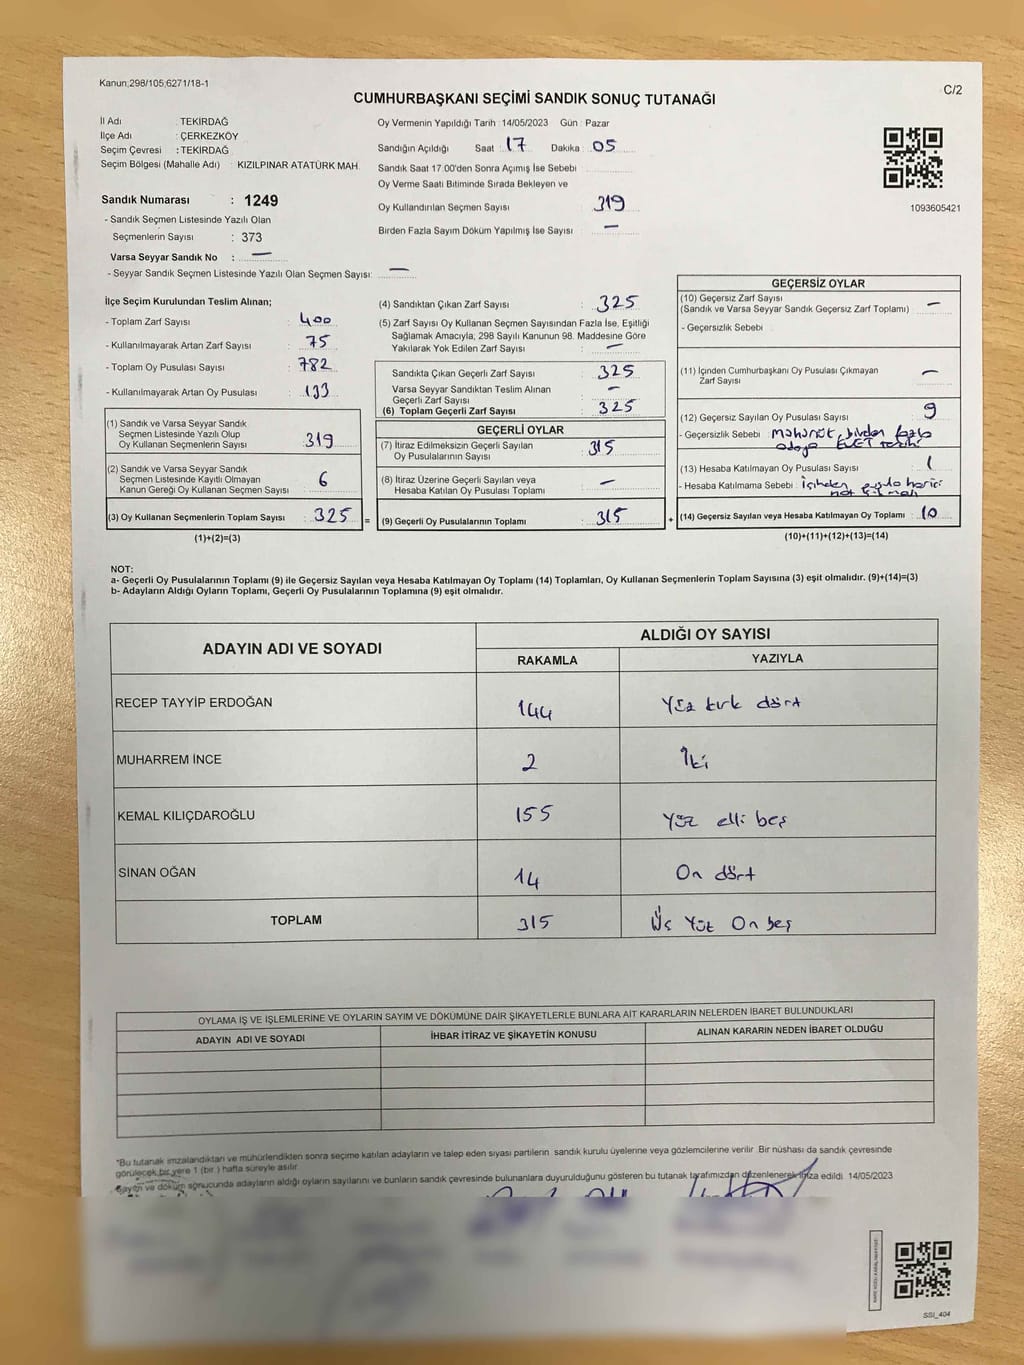 Kanun;298/105;6271/18-1
C/2
CUMHURBAŞKANI SEÇİMİ SANDIK SONUÇ TUTANAĞI
İl Adı : TEKİRDAĞ
İlçe Adı : ÇERKEZKÖY
Seçim Çevresi : TEKİRDAĞ
Seçim Bölgesi (Mahalle Adı) : KIZILPINAR ATATÜRK MAH.
Sandık Numarası : 1249
- Sandık Seçmen Listesinde Yazılı Olan
Seçmenlerin Sayısı : 373
Varsa Seyyar Sandık No : —
- Seyyar Sandık Seçmen Listesinde Yazılı Olan Seçmen Sayısı: —
Oy Vermenin Yapıldığı Tarih : 14/05/2023 Gün : Pazar
Sandığın Açıldığı Saat : 17 Dakika : 05
Sandık Saat 17:00'den Sonra Açımış İse Sebebi
Oy Verme Saati Bitiminde Sırada Bekleyen ve
Oy Kullandırılan Seçmen Sayısı : 319
Birden Fazla Sayım Döküm Yapılmış İse Sayısı : —
1093605421
İlçe Seçim Kurulundan Teslim Alınan;
- Toplam Zarf Sayısı : 400
- Kullanılmayarak Artan Zarf Sayısı : 75
- Toplam Oy Pusulası Sayısı : 782
- Kullanılmayarak Artan Oy Pusulası : 133
(1) Sandık ve Varsa Seyyar Sandık
Seçmen Listesinde Yazılı Olup
Oy Kullanan Seçmenlerin Sayısı : 319
(2) Sandık ve Varsa Seyyar Sandık
Seçmen Listesinde Kayıtlı Olmayan
Kanun Gereği Oy Kullanan Seçmen Sayısı : 6
(3) Oy Kullanan Seçmenlerin Toplam Sayısı : 325 =
(1)+(2)=(3)
(4) Sandıktan Çıkan Zarf Sayısı : 325
(5) Zarf Sayısı Oy Kullanan Seçmen Sayısından Fazla İse, Eşitliği
Sağlamak Amacıyla; 298 Sayılı Kanunun 98. Maddesine Göre
Yakılarak Yok Edilen Zarf Sayısı : —
Sandıkta Çıkan Geçerli Zarf Sayısı : 325
Varsa Seyyar Sandıktan Teslim Alınan
Geçerli Zarf Sayısı : —
(6) Toplam Geçerli Zarf Sayısı : 325
GEÇERLİ OYLAR
(7) İtiraz Edilmeksizin Geçerli Sayılan
Oy Pusulalarının Sayısı : 315
(8) İtiraz Üzerine Geçerli Sayılan veya
Hesaba Katılan Oy Pusulası Toplamı : —
(9) Geçerli Oy Pusulalarının Toplamı : 315 +
GEÇERSİZ OYLAR
(10) Geçersiz Zarf Sayısı
(Sandık ve Varsa Seyyar Sandık Geçersiz Zarf Toplamı) : —
- Geçersizlik Sebebi
(11) İçinden Cumhurbaşkanı Oy Pusulası Çıkmayan
Zarf Sayısı : —
(12) Geçersiz Sayılan Oy Pusulası Sayısı : 9
- Geçersizlik Sebebi : birden fazla
adaya EVET
(13) Hesaba Katılmayan Oy Pusulası Sayısı : 1
- Hesaba Katılmama Sebebi : harici
not
(14) Geçersiz Sayılan veya Hesaba Katılmayan Oy Toplamı : 10
(10)+(11)+(12)+(13)=(14)
NOT:
a- Geçerli Oy Pusulalarının Toplamı (9) ile Geçersiz Sayılan veya Hesaba Katılmayan Oy Toplamı (14) Toplamları, Oy Kullanan Seçmenlerin Toplam Sayısına (3) eşit olmalıdır. (9)+(14)=(3)
b- Adayların Aldığı Oyların Toplamı, Geçerli Oy Pusulalarının Toplamına (9) eşit olmalıdır.
ADAYIN ADI VE SOYADI ALDIĞI OY SAYISI
RAKAMLA YAZIYLA
RECEP TAYYİP ERDOĞAN 144 Yüz kırk dört
MUHARREM İNCE 2 İki
KEMAL KILIÇDAROĞLU 155 Yüz elli beş
SİNAN OĞAN 14 On dört
TOPLAM 315 Üç Yüz On beş
OYLAMA İŞ VE İŞLEMLERİNE VE OYLARIN SAYIM VE DÖKÜMÜNE DAİR ŞİKAYETLERLE BUNLARA AİT KARARLARIN NELERDEN İBARET BULUNDUKLARI
ADAYIN ADI VE SOYADI İHBAR İTİRAZ VE ŞİKAYETİN KONUSU ALINAN KARARIN NEDEN İBARET OLDUĞU
*Bu tutanak imzalandıktan ve mühürlendikten sonra seçime katılan adayların ve talep eden siyasi partilerin sandık kurulu üyelerine veya gözlemcilerine verilir. Bir nüshası da sandık çevresinde
görülecek bir yere 1 (bir ) hafta süreyle asılır.
Sayım ve döküm sonucunda adayların aldığı oyların sayılarını ve bunların sandık çevresinde bulunanlara duyurulduğunu gösteren bu tutanak tarafımızdan düzenlenerek imza edildi. 14/05/2023
SSI_404